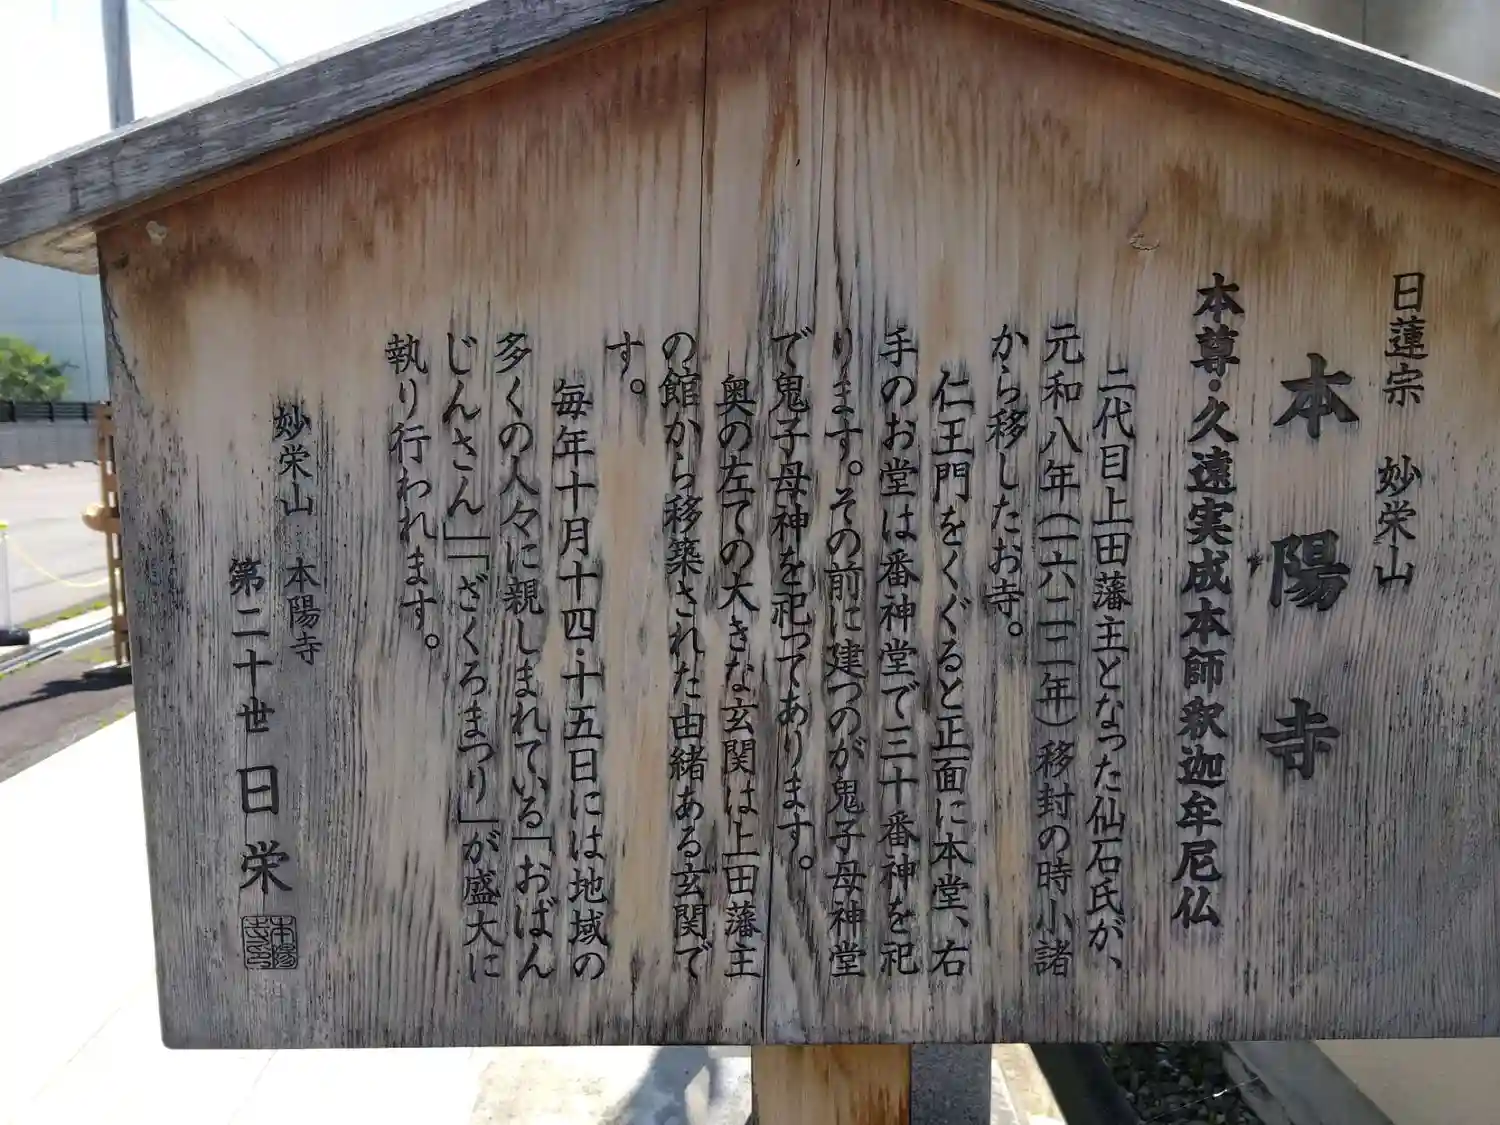 日蓮宗 妙栄山
本陽寺
本尊・久遠実成本師釈迦牟尼仏
二代目上田藩主となった仙石氏が、
元和八年(一六二二年)移封の時小諸
から移したお寺。
仁王門をくぐると正面に本堂、右
手のお堂は番神堂で三十番神を祀
ります。その前に建つのが鬼子母神堂
で鬼子母神を祀ってあります。
奥の左ての大きな玄関は上田藩主
の館から移築された由緒ある玄関で
す。
毎年十月十四・十五日には地域の
多くの人々に親しまれている「おばん
じんさん」「ざくろまつり」が盛大に
執り行われます。
妙栄山 本陽寺
第二十世 日栄
本陽寺印